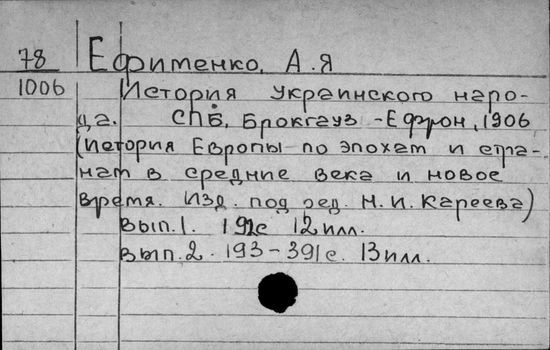 78 Ефименко, А.Я
1006 История Украинского наро-
да. СПБ, Брокгауз-Ефрон, 1906
(История Европы по эпохам и стра-
нам в средние века и новое
время. Изд. под ред. Н.И. Кареева)
Вып.1. 192с 12илл.
Вып.2. 193-391с. 13илл.